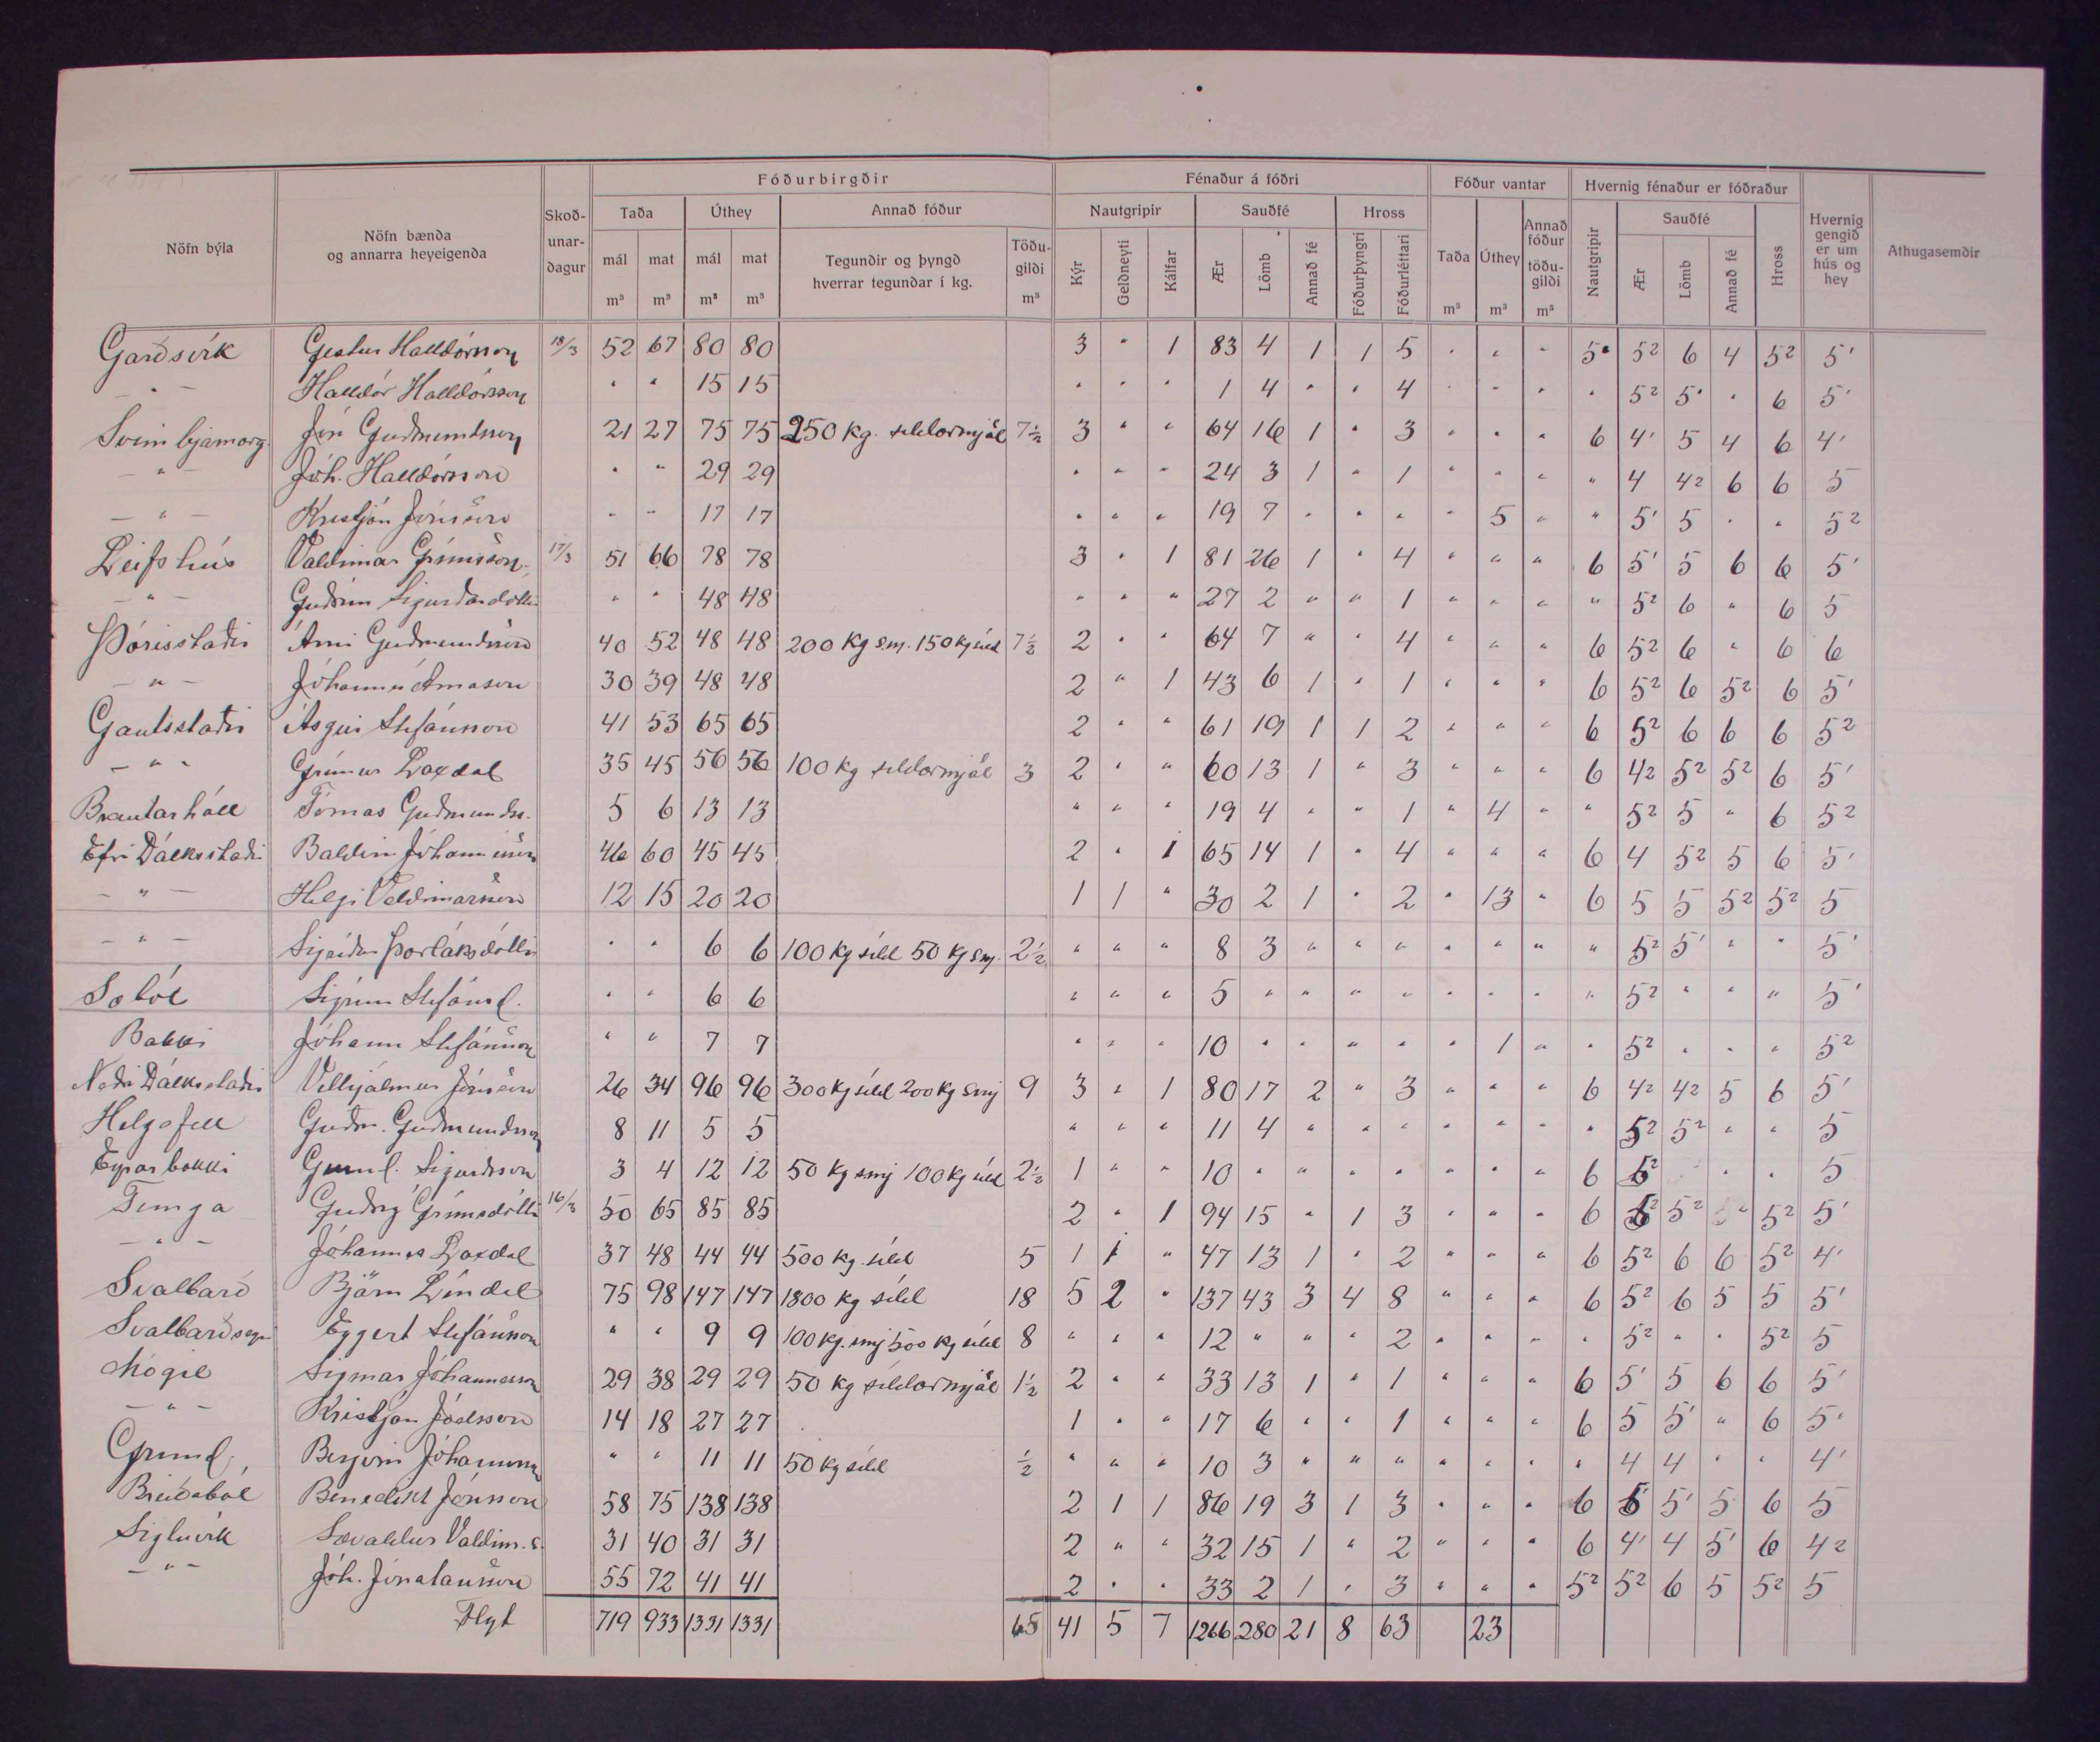 Fóðurbirgðir Fénaður á fóðri Fóður vantar Hvernig fénaður er fóðraður
Nöfn býla Nöfn bænda og annarra heyeigenda Skoð-unar-dagur Taða Úthey Annað fóður Nautgripir Sauðfé Hross Taða Úthey Annað fóður töðu-gildi Nautgripir Sauðfé Hross Hvernig gengið er um hús og hey Athugasemdir
mál mat mál mat Tegundir og þyngd hverrar tegundar í kg. Töðu-gildi Kýr Geldneyti Kálfar Ær Lömb Annað fé Fóðurþyngri Fóðurléttari Ær Lömb Annað fé
m³ m³ m³ m³ m³ m³ m³ m³
Garðsvík Gestur Halldórsson 18/3 52 67 80 80 3 " 1 83 4 1 1 5 " " " 5 5² 6 4 5² 5'
- " - Halldór Halldórsson " " 15 15 " " " 1 4 " " 4 " " " " 5² 5' " 6 5'
Sveinbjarnarg. Jón Guðmundsson 21 27 75 75 250 kg. síldarmjöl 7½ 3 " " 64 16 1 " 3 " " " 6 4' 5 4 6 4'
- " - Jóh. Halldórsson " " 29 29 " " " 24 3 1 " 1 " " " " 4 4² 6 6 5
- " - Kristján Jónsson " " 17 17 " " " 19 7 " " " " 5 " " 5' 5 " " 5²
Leifshús Valdimar Grímsson 17/3 51 66 78 78 3 " 1 81 26 1 " 4 " " " 6 5' 5 6 6 5'
- " - Guðrún Sigurðardóttir " " 48 48 " " " 27 2 " " 1 " " " " 5² 6 " 6 5
Þórisstaðir Árni Guðmundsson 40 52 48 48 200 kg s.m. 150 kg síld 7½ 2 " " 64 7 " " 4 " " " 6 5² 6 " 6 6
- " - Jóhannes Árnason 30 39 48 48 2 " 1 43 6 1 " 1 " " " 6 5² 6 5² 6 5'
Gautsstaðir Ásgeir Stefánsson 41 53 65 65 2 " " 61 19 1 1 2 " " " 6 5² 6 6 6 5²
- " - Grímur Laxdal 35 45 56 56 100 kg síldarmjöl 3 2 " " 60 13 1 " 3 " " " 6 4² 5² 5² 6 5'
Brautarhóll Tómas Guðmundss. 5 6 13 13 " " " 19 4 " " 1 " 4 " " 5² 5 " 6 5²
Efri Dálksstaðir Baldvin Jóhannesson 46 60 45 45 2 " 1 65 14 1 " 4 " " " 6 4 5² 5 6 5'
- " - Helgi Valdimarsson 12 15 20 20 1 1 " 30 2 1 " 2 " 13 " 6 5 5 5² 5² 5
- " - Sigríður Þorláksdóttir " " 6 6 100 kg síld 50 kg smj. 2½ " " " 8 3 " " " " " " " 5² 5' " " 5'
Sólból Sigrún Stefánsd. " " 6 6 " " " 5 " " " " " " " " 5² " " " 5'
Bakki Jóhann Stefánsson " " 7 7 " " " 10 " " " " " 1 " " 5² " " " 5²
Neðri Dálksstaðir Vilhjálmur Jónsson 26 34 96 96 300 kg síld 200 kg smj 9 3 " 1 80 17 2 " 3 " " " 6 4² 4² 5 6 5'
Helgafell Guðm. Guðmundsson 8 11 5 5 " " " 11 4 " " " " " " " 5² 5² " " 5
Eyrarbakki Gunnl. Sigurðsson 3 4 12 12 50 kg smj 100 kg síld 2½ 1 " " 10 " " " " " " " 6 5² " " 5
Tunga Guðný Grímsdóttir 16/3 50 65 85 85 2 " 1 94 15 " 1 3 " " " 6 5² 5² 5² 5'
- " - Jóhannes Laxdal 37 48 44 44 500 kg. síld 5 1 1 " 47 13 1 " 2 " " " 6 5² 6 6 5² 4'
Svalbarð Björn Líndal 75 98 147 147 1800 kg síld 18 5 2 " 137 43 3 4 8 " " " 6 5² 6 5 5 5'
Svalbarðseyri Eggert Stefánsson " " 9 9 100 kg. smj 500 kg síld 8 " " " 12 " " " 2 " " " " 5² " " 5² 5
Mógil Sigmar Jóhannesson 29 38 29 29 50 kg síldarmjöl 1½ 2 " " 33 13 1 " 1 " " " 6 5' 5 6 6 5'
- " - Kristján Jóelsson 14 18 27 27 1 " " 17 6 " " 1 " " " 6 5 5' " 6 5'
Grund Bergvin Jóhannsson " " 11 11 50 kg síld ½ " " " 10 3 " " " " " " " 4 4 " " 4'
Breiðaból Benedikt Jónsson 58 75 138 138 2 1 1 86 19 3 1 3 " " " 6 5 5' 5 6 5
Sigluvík Sævaldur Valdim.s. 31 40 31 31 2 " " 32 15 1 " 2 " " " 6 4' 4 5' 6 4²
- " - Jóh. Jónatansson 55 72 41 41 2 " " 33 2 1 " 3 " " " 5² 5² 6 5 5² 5
Flyt 719 933 1331 1331 65 41 5 7 1266 280 21 8 63 23